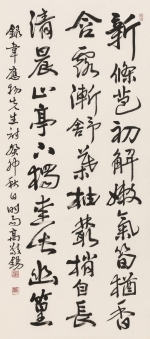 新條苞初解嫩氣筍猶香
含露漸舒葉抽叢稍自長
清晨止亭下獨愛此幽篁
錄韋應物先生詩癸卯秋日時雨高敬錫